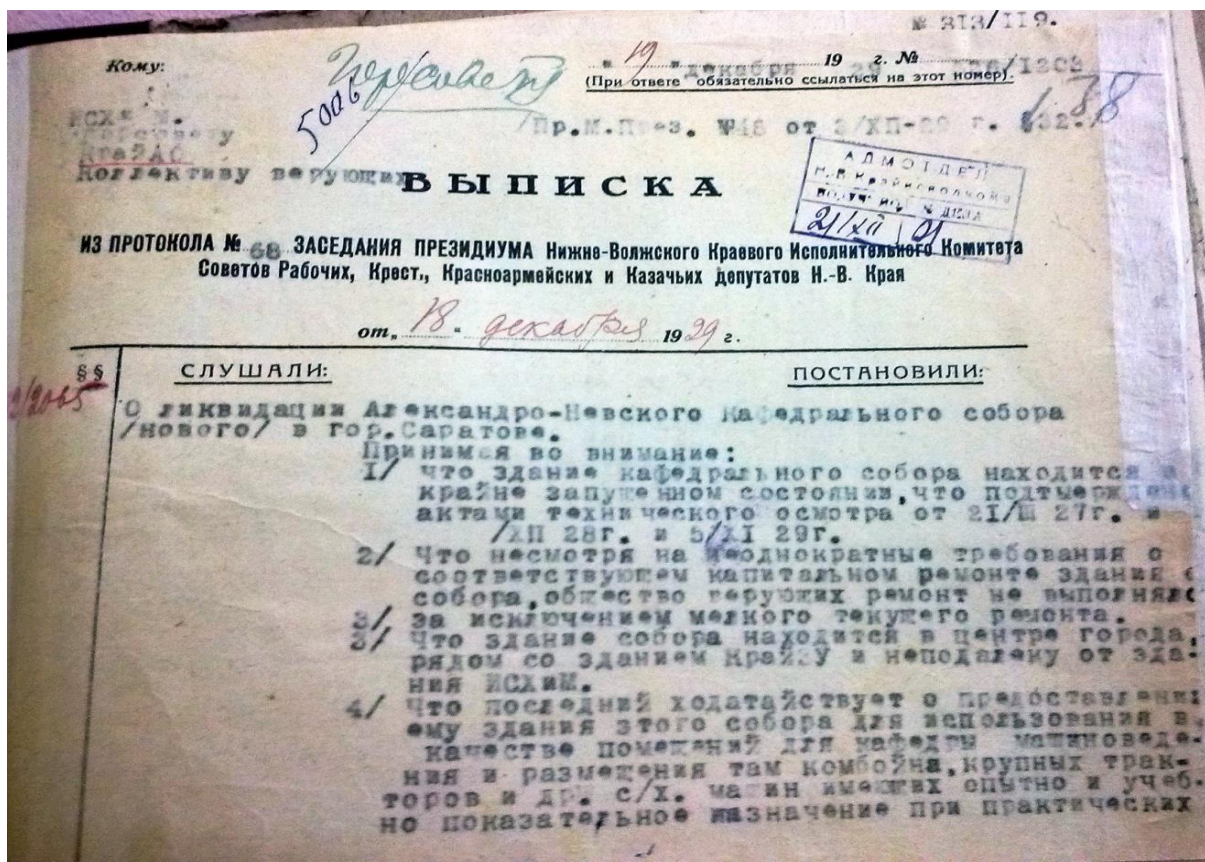 № 313/119.
Кому:
Горсовету
5006
"19" декабря 1929 г. № /1303
(При ответе обязательно ссылаться на этот номер).
138
ИСХ и М.
Горсовету
КрайАО
Коллективу верующих
/Пр.М.През. №48 от 3/ХП-29 г. §32.
ВЫПИСКА
АДМОТДЕЛ
Н.В. Крайисполкома
21/XII
ИЗ ПРОТОКОЛА № 68 ЗАСЕДАНИЯ ПРЕЗИДИУМА Нижне-Волжского Краевого Исполнительного Комитета
Советов Рабочих, Крест., Красноармейских и Казачьих Депутатов Н.-В. Края
от "18" декабря 1929 г.
§§
СЛУШАЛИ:
ПОСТАНОВИЛИ:
2/2065
О ликвидации Александро-Невского Кафедрального собора
/нового/ в гор.Саратове.
Принимая во внимание:
1/ что здание кафедрального собора находится в
крайне запущенном состоянии,что подтвержден
актами технического осмотра от 21/Ш 27г. и
/ХП 28г. и 5/XI 29г.
2/ Что несмотря на неоднократные требования о
соответствующем капитальном ремонте здания с
собора,общество верующих ремонт не выполнялс
3/ за исключением мелкого текущего ремонта.
3/ Что здание собора находится в центре города,
рядом со зданием КрайЗУ и неподалеку от зда-
ния ИСХиМ.
4/ Что последний ходатайствует о предоставлени
ему здания этого собора для использования в
качестве помещений для кафедры машиноведе-
ния и размещения там комбойна,крупных трак-
торов и др. с/х. машин имеющих опытно и учеб-
но показательное назначение при практических